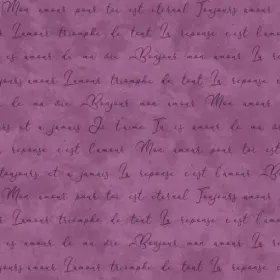 Mon amour pour toi est eternal Toujours amour
L'amour triomphe de tout La reponse c'est l'amour
is amour de ma vie Bonjour mon amour Mon
jours amour L'amour triomphe de tout La reponse
de ma vie Bonjour mon amour Mon amour
et a jamais Je t'aime Tu es amour de ma
reponse c'est l'amour Mon amour pour toi est
toujours et a jamais La reponse c'est l'amour
Mon amour pour toi est eternal Toujours amour
L'amour triomphe de tout La reponse c'est l'amour
is amour de ma vie Bonjour mon amour Mon
jours amour L'amour triomphe de tout La reponse